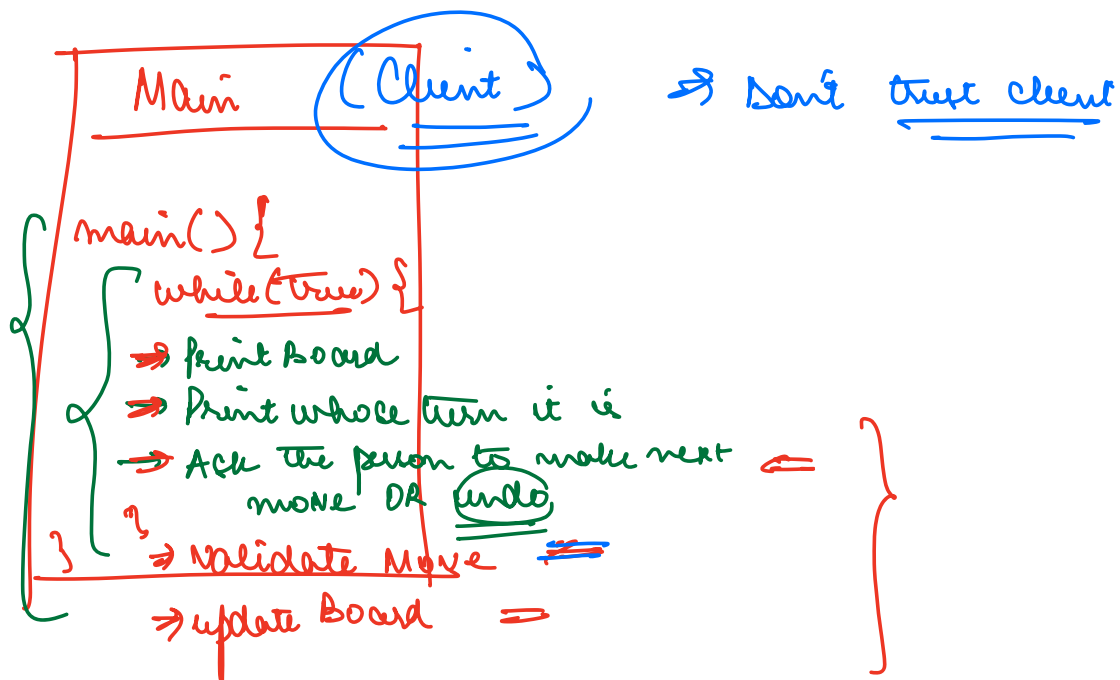 Main (Client) => Don't trust client
main() {
while(true) {
=> Print Board
=> Print whose turn it is
=> Ask the person to make next <=
move OR undo
}
} => Validate Move
=> update Board =
}